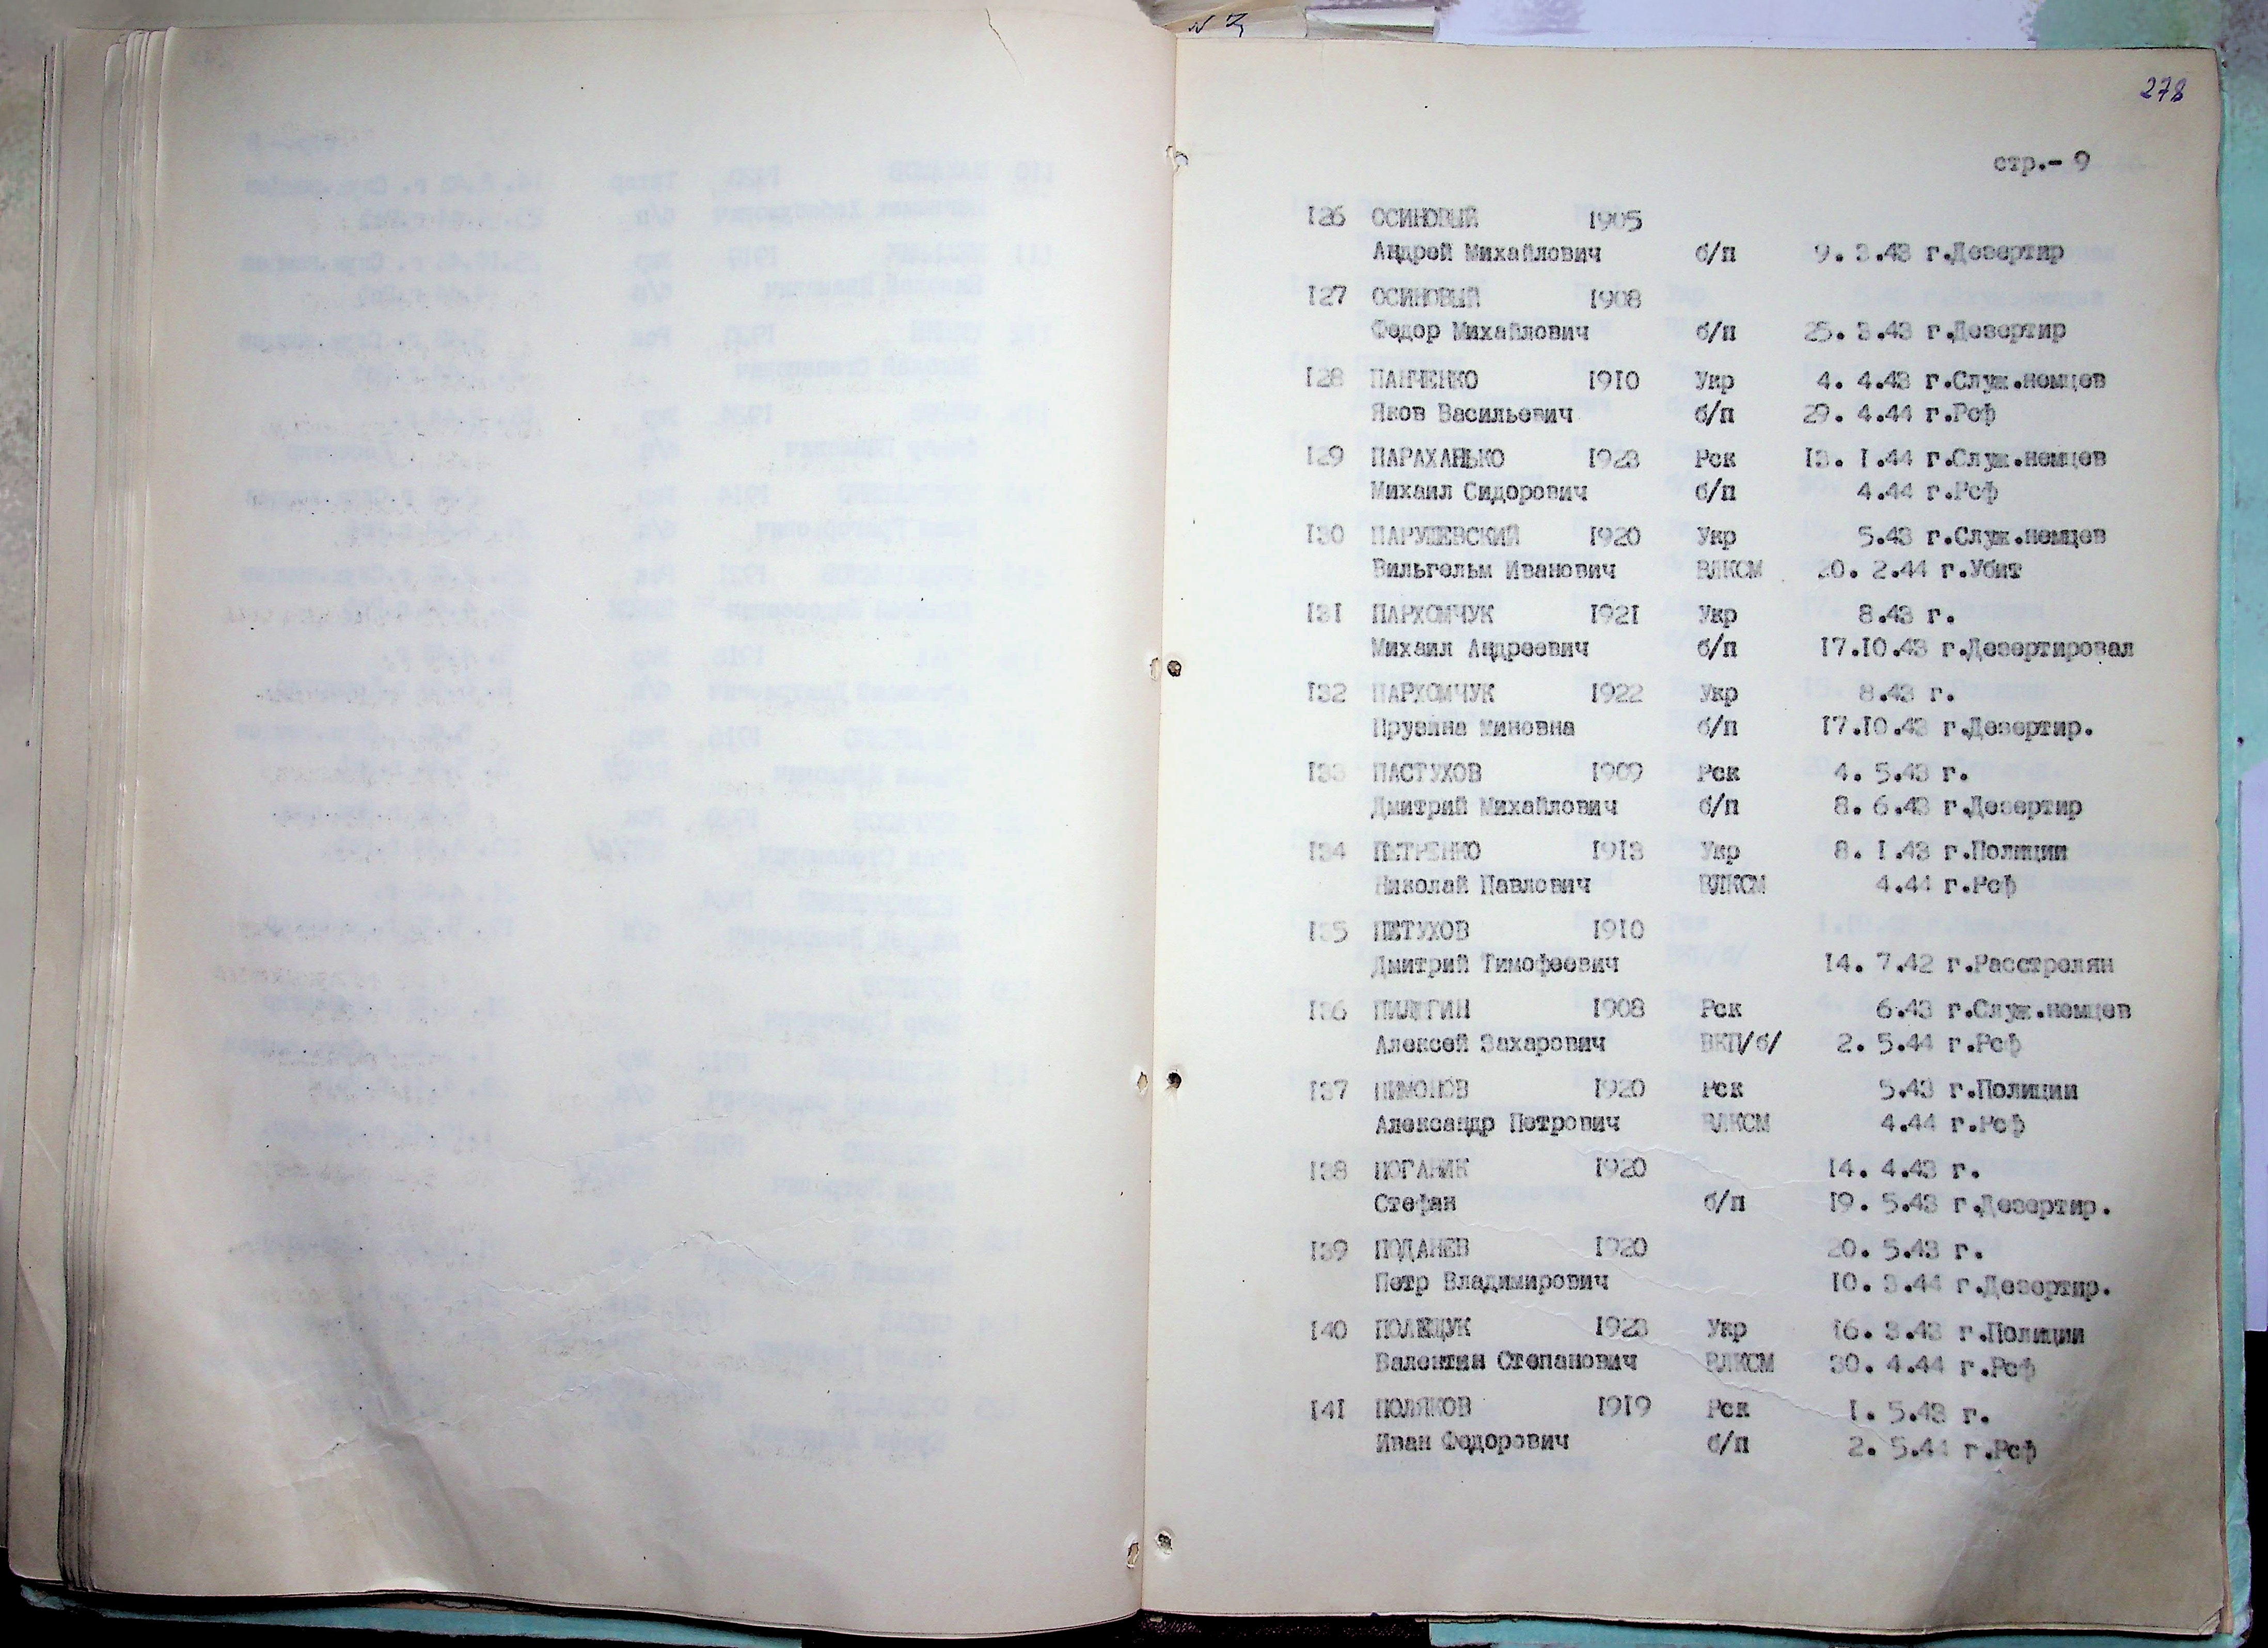 278
стр.- 9
126 ОСИНОВЫЙ 1905
Андрей Михайлович б/п 9. 3.43 г.Дезертир
127 ОСИНОВЫЙ 1908
Федор Михайлович б/п 25. 3.43 г.Дезертир
128 ПАНЧЕНКО 1910 Укр 4. 4.43 г.Служ.немцев
Яков Васильевич б/п 29. 4.44 г.Рсф
129 ПАРАХАНЬКО 1923 Рск 13. 1.44 г.Служ.немцев
Михаил Сидорович б/п 4.44 г.Рсф
130 ПАРУШЕВСКИЙ 1920 Укр 5.43 г.Служ.немцев
Вильгельм Иванович ВЛКСМ 20. 2.44 г.Убит
131 ПАРХОМЧУК 1921 Укр 8.43 г.
Михаил Андреевич б/п 17.10.43 г.Дезертировал
132 ПАРХОМЧУК 1922 Укр 8.43 г.
Прузина Миновна б/п 17.10.43 г.Дезертир.
133 ПАСТУХОВ 1909 Рск 4. 5.43 г.
Дмитрий Михайлович б/п 8. 6.43 г.Дезертир
134 ПЕТРЕНКО 1913 Укр 8. 1.43 г.Полиции
Николай Павлович ВЛКСМ 4.44 г.Рсф
135 ПЕТУХОВ 1910
Дмитрий Тимофеевич 14. 7.42 г.Расстрелян
136 ПИЛЮГИН 1908 Рск 6.43 г.Служ.немцев
Алексей Захарович ВКП/б/ 2. 5.44 г.Рсф
137 ПИМОНОВ 1920 Рск 5.43 г.Полиции
Александр Петрович ВЛКСМ 4.44 г.Рсф
138 ПОГАНИК 1920 14. 4.43 г.
Стефан б/п 19. 5.43 г.Дезертир.
139 ПОДАНЕВ 1920 20. 5.43 г.
Петр Владимирович 10. 3.44 г.Дезертир.
140 ПОЛЕЩУК 1923 Укр 16. 3.43 г.Полиции
Валентин Степанович ВЛКСМ 30. 4.44 г.Рсф
141 ПОЛЯКОВ 1919 Рск 1. 5.43 г.
Иван Федорович б/п 2. 5.44 г.Рсф